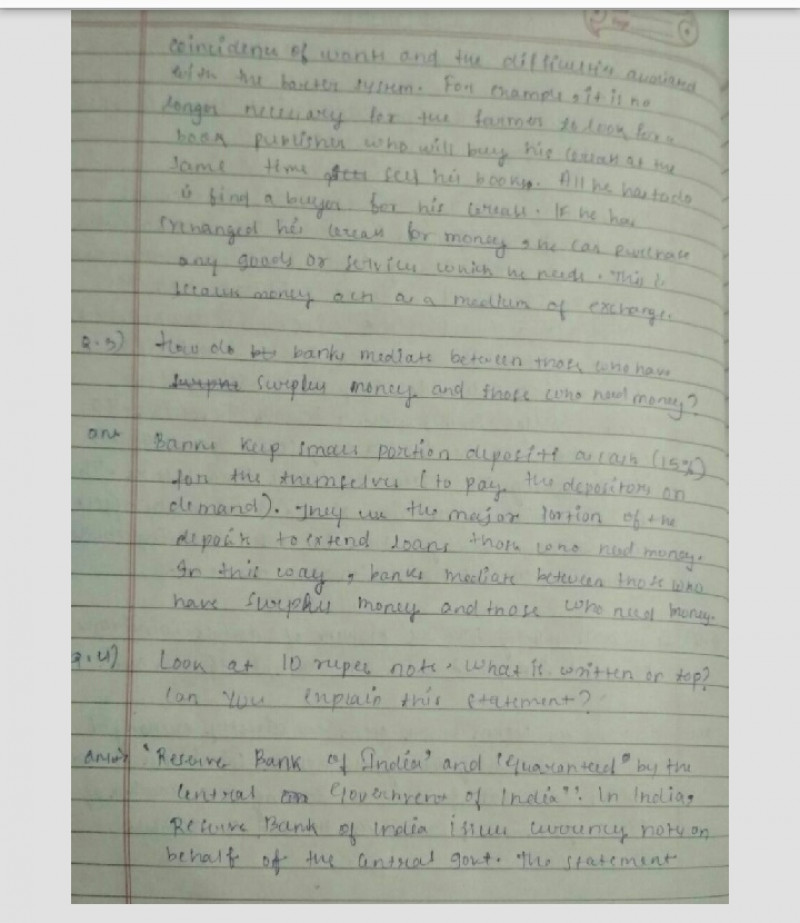 coincidence of wants and the difficulties
with the barter system. For example, it is no
longer necessary for the farmer to look for a
book publisher who will buy his cereals at the
same time sell his books. All he has to do
is find a buyer for his cereals. If he has
exchanged his cereals for money, he can purchase
any goods or service which he needs. This is
because money acts as a medium of exchange.
Q.3) How do banks mediate between those who have
surplus money and those who need money?
ans Banks keep small portion deposits as cash (15%)
for the themselves (to pay the depositors on
demand). They use the major portion of the
deposits to extend loans those who need money.
In this way, banks mediate between those who
have surplus money and those who need money.
Q.4) Look at 10 rupee note. What is written on top?
Can you explain this statement?
"Reserve Bank of India" and "Guaranteed" by the
Central Government of India". In India,
Reserve Bank of India issue currency note on
behalf of the central govt. The statement